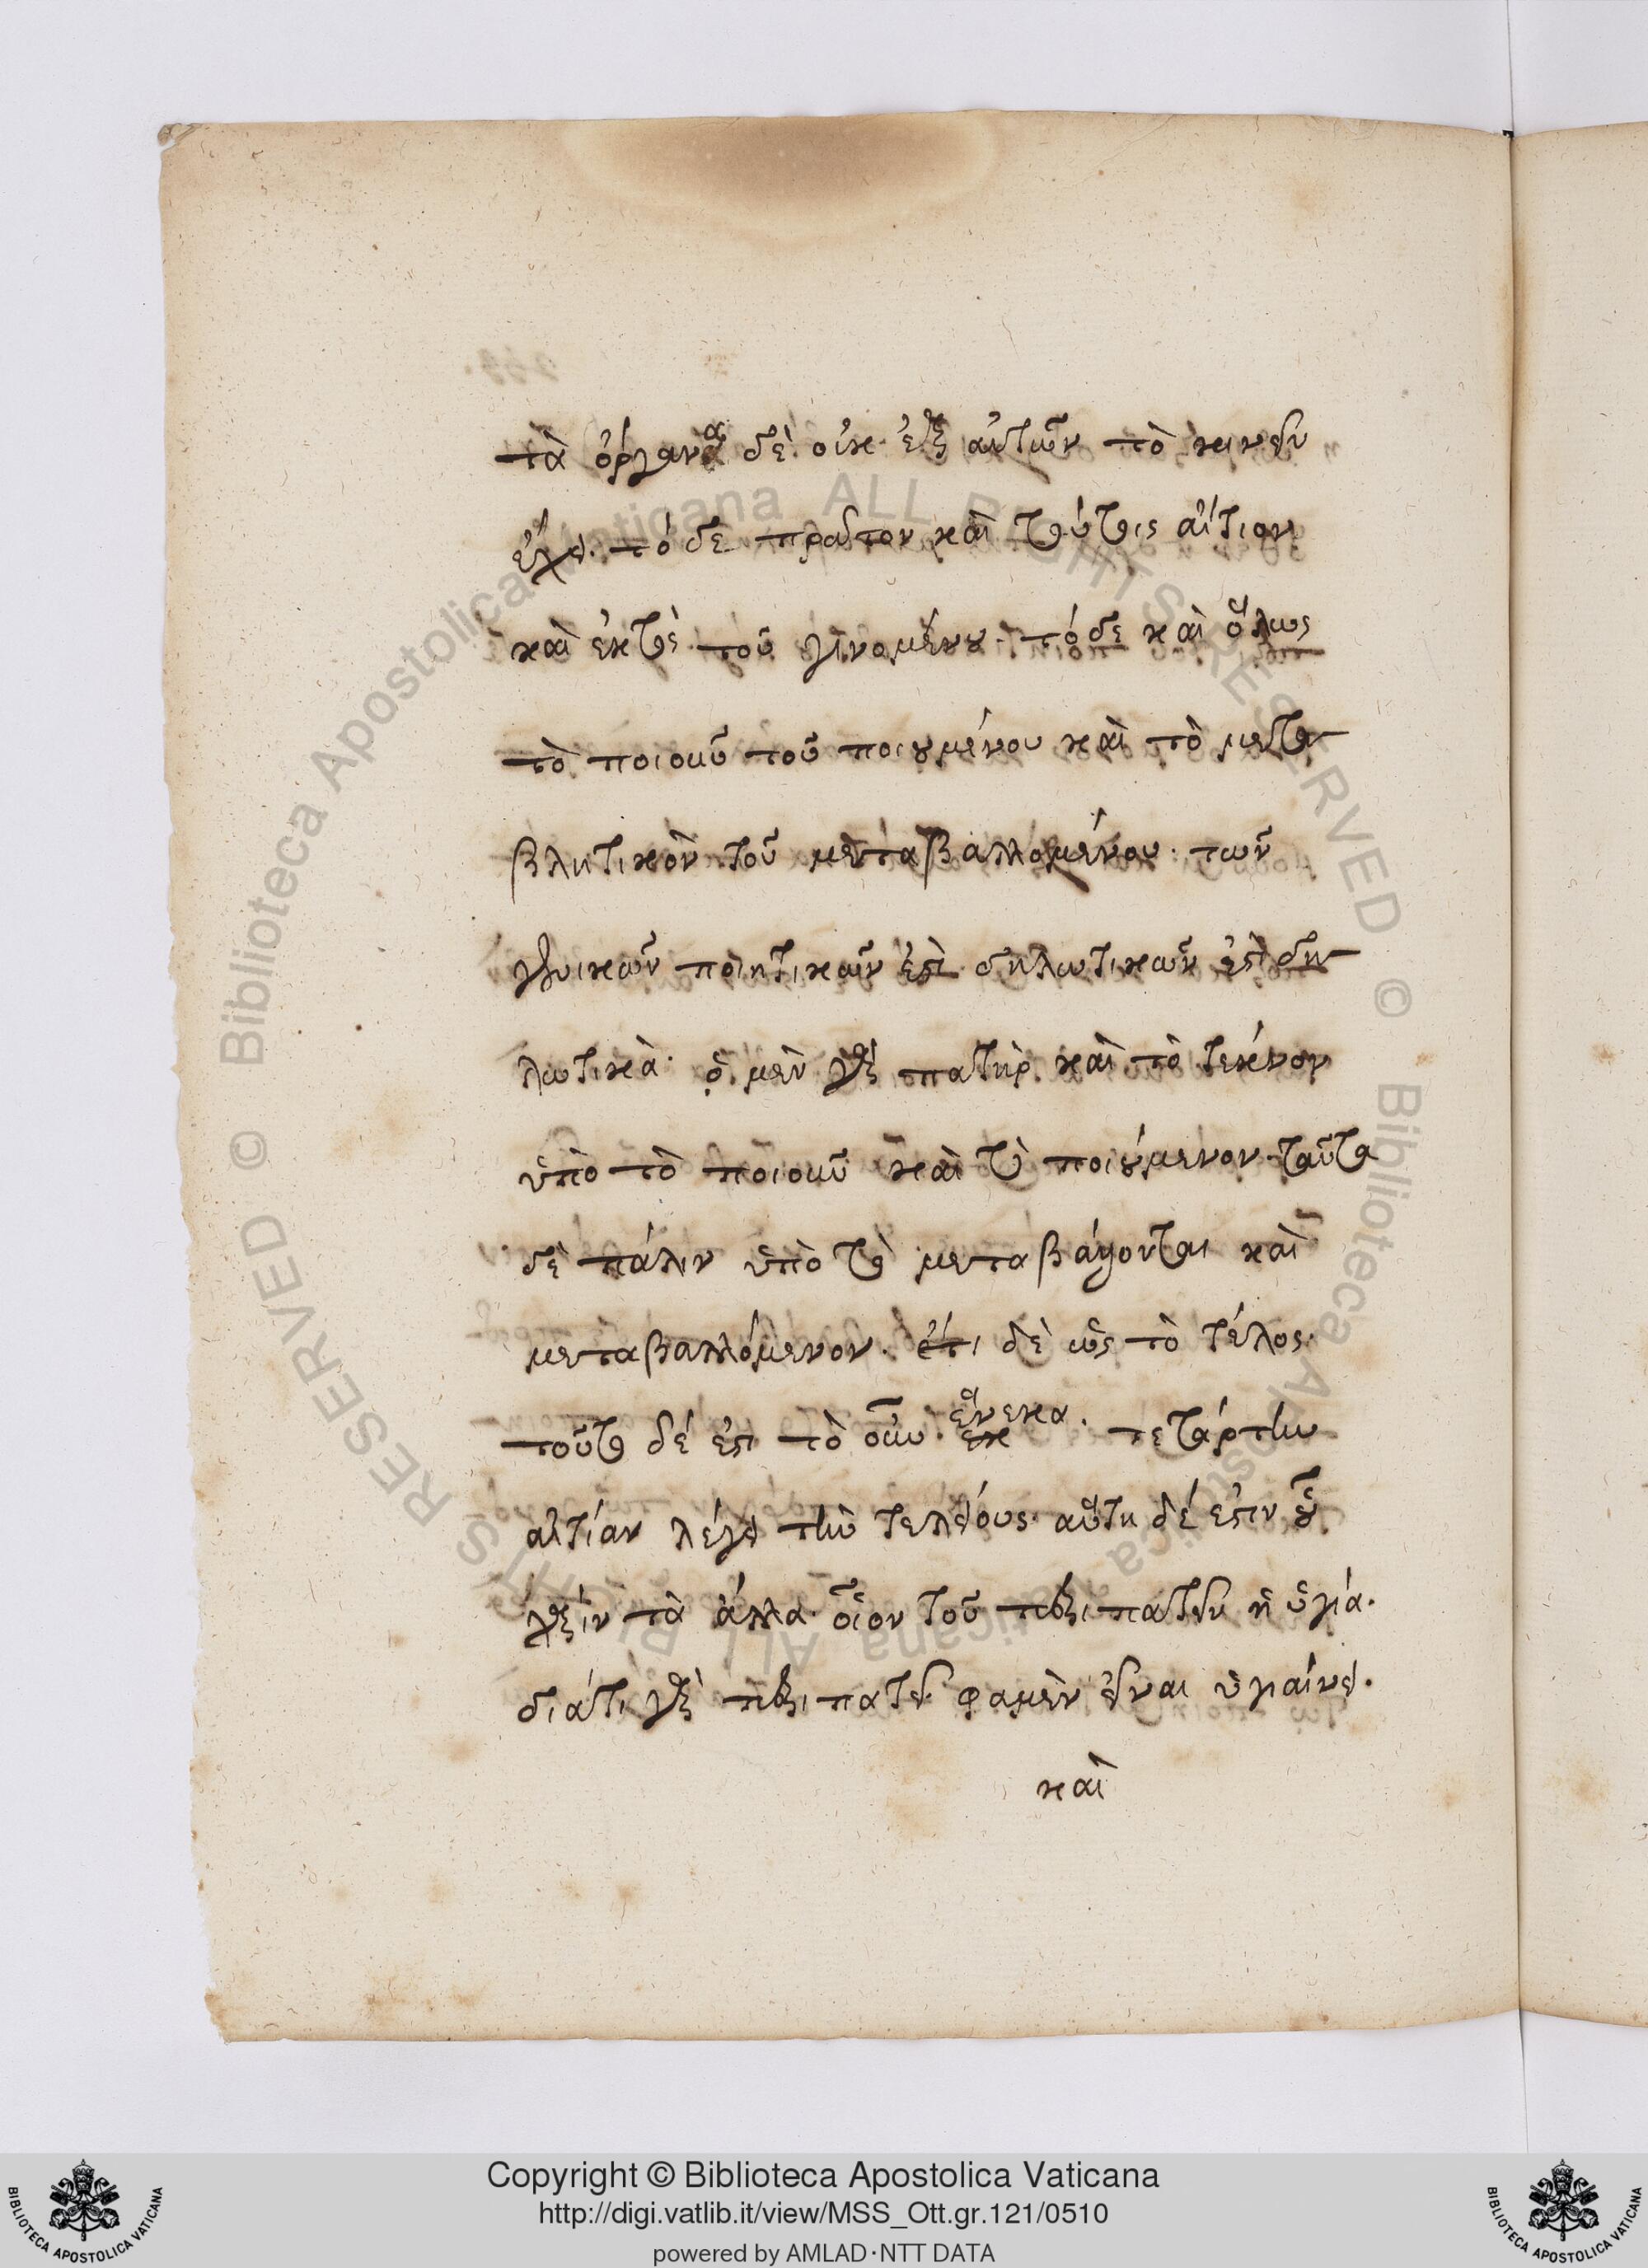 τὰ ὄργανα δὲ οὐκ ἐξ αὐτῶν τὸ κινεῖν
ἔχει. τό δε πρῶτον καὶ τούτοις αἴτιον
καὶ ἐκτὸς τοῦ γινομένου. τό δε καὶ ὅλως
τὸ ποιοῦν τοῦ ποιουμένου καὶ τὸ μετα
βλητικὸν τοῦ μεταβαλλομένου. τῶν
γενικῶν ποιητικῶν ἐστὶ δηλωτικῶν ἐστὶ δη
λωτικά. ὁ μὲν γὰρ πατὴρ καὶ τὸ τεκνον
ὑπὸ τὸ ποιοῦν καὶ τὸ ποιούμενον ταῦτα
δὲ πάλιν ὑπὸ τὸ μεταβάλλονται καὶ
μεταβαλλόμενον. ἔτι δὲ ὡς τὸ τέλος.
τοῦτο δέ ἐστι τὸ οὗ ἕνεκα. τετάρτην
αἰτίαν λέγει τὴν τελειούς. αὕτη δέ ἐστιν οὗ
χάριν τὰ άλλα. οἷον τοῦ περιπατεῖν ἡ ὑγιά.
διάτι γὰρ περιπατεῖ φαμὲν εἶναι ὑγιαίνει.
καὶ
Copyright © Biblioteca Apostolica Vaticana
http://digi.vatlib.it/view/MSS_Ott.gr.121/0510
powered by AMLAD·NTT DATA
BIBLIOTECA APOSTOLICA VATICANA
BIBLIOTECA APOSTOLICA VATICANA
© Biblioteca Apostolica Vaticana ALL RIGHTS RESERVED © Biblioteca Apostolica Vaticana ALL RIGHTS RESERVED